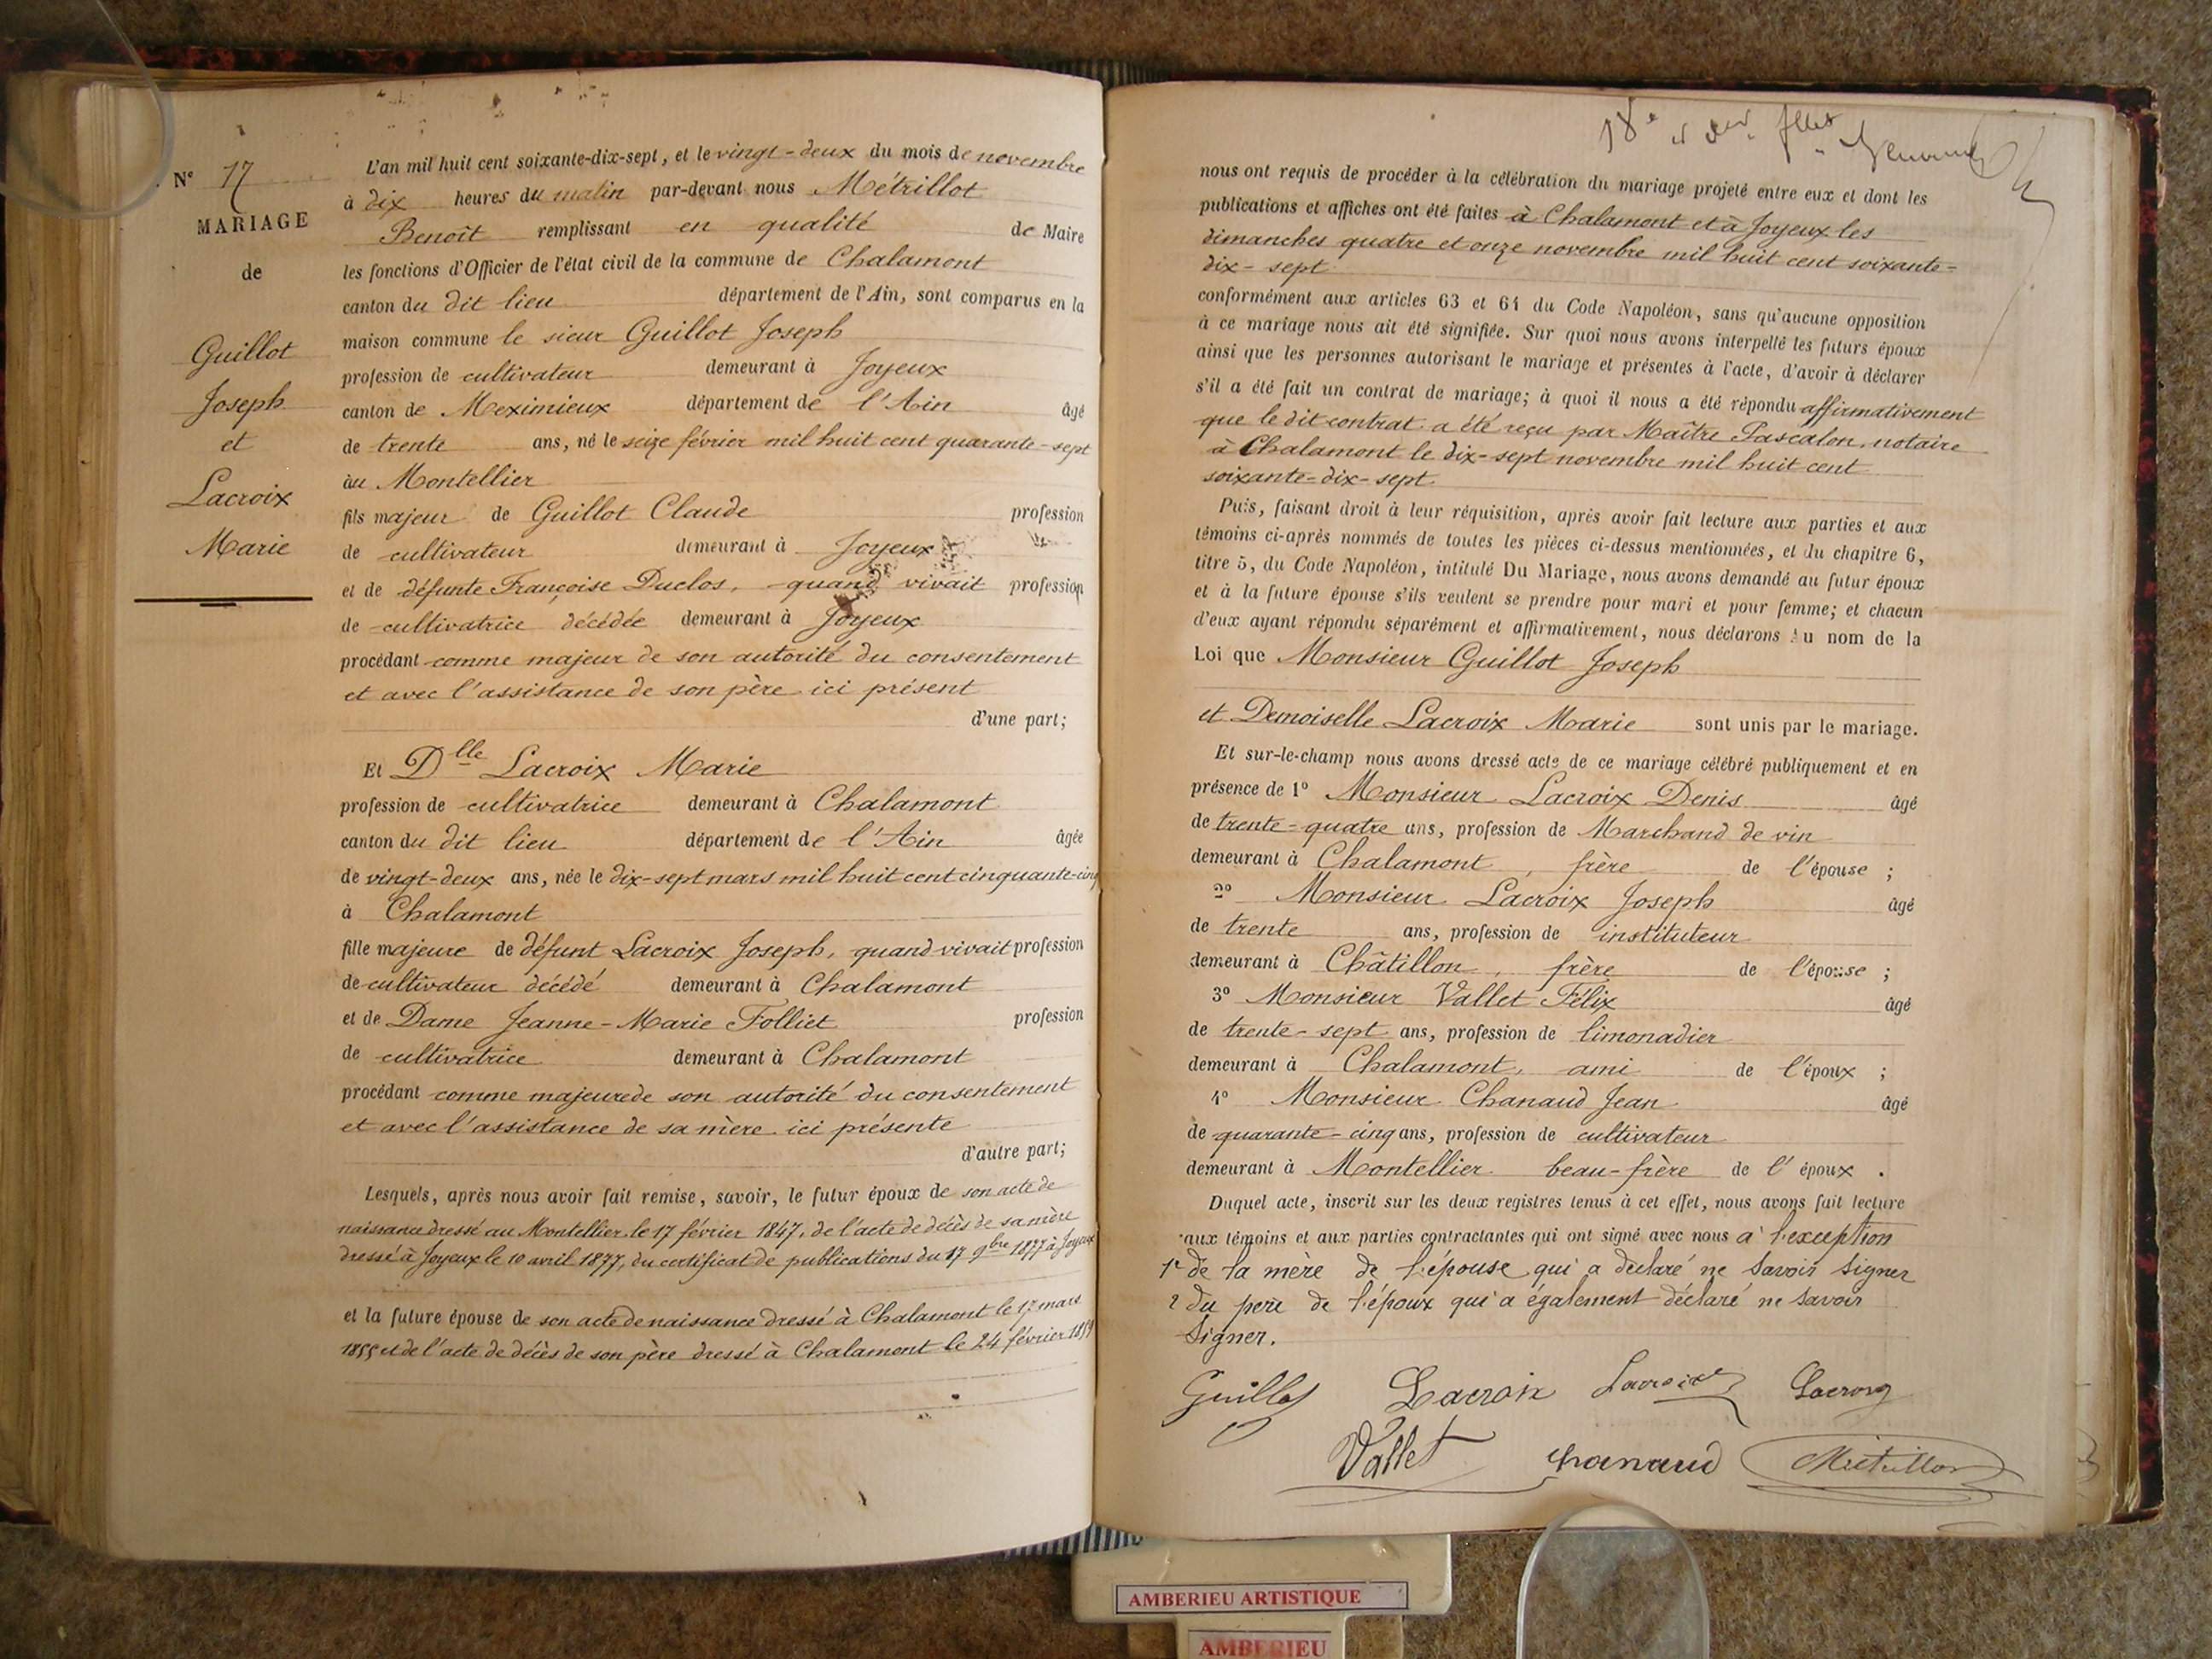 Nº 17
MARIAGE
de
Guillot
Joseph
et
Lacroix
Marie
L'an mil huit cent soixante-dix-sept, et le vingt-deux du mois de novembre
à dix heures du matin par-devant nous Métrillot
Benoît remplissant en qualité de Maire
les fonctions d'Officier de l'état civil de la commune de Chalamont
canton du dit lieu département de l'Ain, sont comparus en la
maison commune le sieur Guillot Joseph
profession de cultivateur demeurant à Joyeux
canton de Meximieux département de l'Ain âgé
de trente ans, né le seize février mil huit cent quarante-sept
au Montellier
fils majeur de Guillot Claude profession
de cultivateur demeurant à Joyeux
et de défunte Françoise Duclos, quand vivait profession
de cultivatrice décédée demeurant à Joyeux
procédant comme majeur de son autorité du consentement
et avec l'assistance de son père ici présent
d'une part;
Et Dlle Lacroix Marie
profession de cultivatrice demeurant à Chalamont
canton du dit lieu département de l'Ain âgée
de vingt-deux ans, née le dix-sept mars mil huit cent cinquante-cinq
à Chalamont
fille majeure de défunt Lacroix Joseph, quand vivait profession
de cultivateur décédé demeurant à Chalamont
et de Dame Jeanne-Marie Folliet profession
de cultivatrice demeurant à Chalamont
procédant comme majeure de son autorité du consentement
et avec l'assistance de sa mère ici présente
d'autre part;
Lesquels, après nous avoir fait remise, savoir, le futur époux de son acte de
naissance dressé au Montellier le 17 février 1847, de l'acte de décès de sa mère
dressé à Joyeux le 10 avril 1877, du certificat de publications du 17 9bre 1877 à Joyeux
et la future épouse de son acte de naissance dressé à Chalamont le 17 mars
1855 et de l'acte de décès de son père dressé à Chalamont le 24 février
18e
nous ont requis de procéder à la célébration du mariage projeté entre eux et dont les
publications et affiches ont été faites à Chalamont et à Joyeux les
dimanches quatre et onze novembre mil huit cent soixante-
dix-sept
conformément aux articles 63 et 64 du Code Napoléon, sans qu'aucune opposition
à ce mariage nous ait été signifiée. Sur quoi nous avons interpellé les futurs époux
ainsi que les personnes autorisant le mariage et présentes à l'acte, d'avoir à déclarer
s'il a été fait un contrat de mariage; à quoi il nous a été répondu affirmativement
que le dit contrat a été reçu par Maître Pascalon, notaire
à Chalamont le dix-sept novembre mil huit cent
soixante-dix-sept.
Puis, faisant droit à leur réquisition, après avoir fait lecture aux parties et aux
témoins ci-après nommés de toutes les pièces ci-dessus mentionnées, et du chapitre 6,
titre 5, du Code Napoléon, intitulé Du Mariage, nous avons demandé au futur époux
et à la future épouse s'ils veulent se prendre pour mari et pour femme; et chacun
d'eux ayant répondu séparément et affirmativement, nous déclarons Au nom de la
Loi que Monsieur Guillot Joseph
et Demoiselle Lacroix Marie sont unis par le mariage.
Et sur-le-champ nous avons dressé acte de ce mariage célébré publiquement et en
présence de 1º Monsieur Lacroix Denis âgé
de trente-quatre ans, profession de Marchand de vin
demeurant à Chalamont, frère de l'épouse ;
2º Monsieur Lacroix Joseph âgé
de trente ans, profession de instituteur
demeurant à Châtillon, frère de l'épouse ;
3º Monsieur Vallet Félix âgé
de trente-sept ans, profession de limonadier
demeurant à Chalamont, ami de l'époux ;
4º Monsieur Chanaud Jean âgé
de quarante-cinq ans, profession de cultivateur
demeurant à Montellier beau-frère de l'époux .
Duquel acte, inscrit sur les deux registres tenus à cet effet, nous avons fait lecture
aux témoins et aux parties contractantes qui ont signé avec nous à l'exception
1º de la mère de l'épouse qui a déclaré ne savoir signer
2 du père de l'époux qui a également déclaré ne savoir
signer.
Guillot Lacroix Lacroix Lacroix
Vallet Chanaud Métrillot
AMBERIEU ARTISTIQUE
AMBERIEU